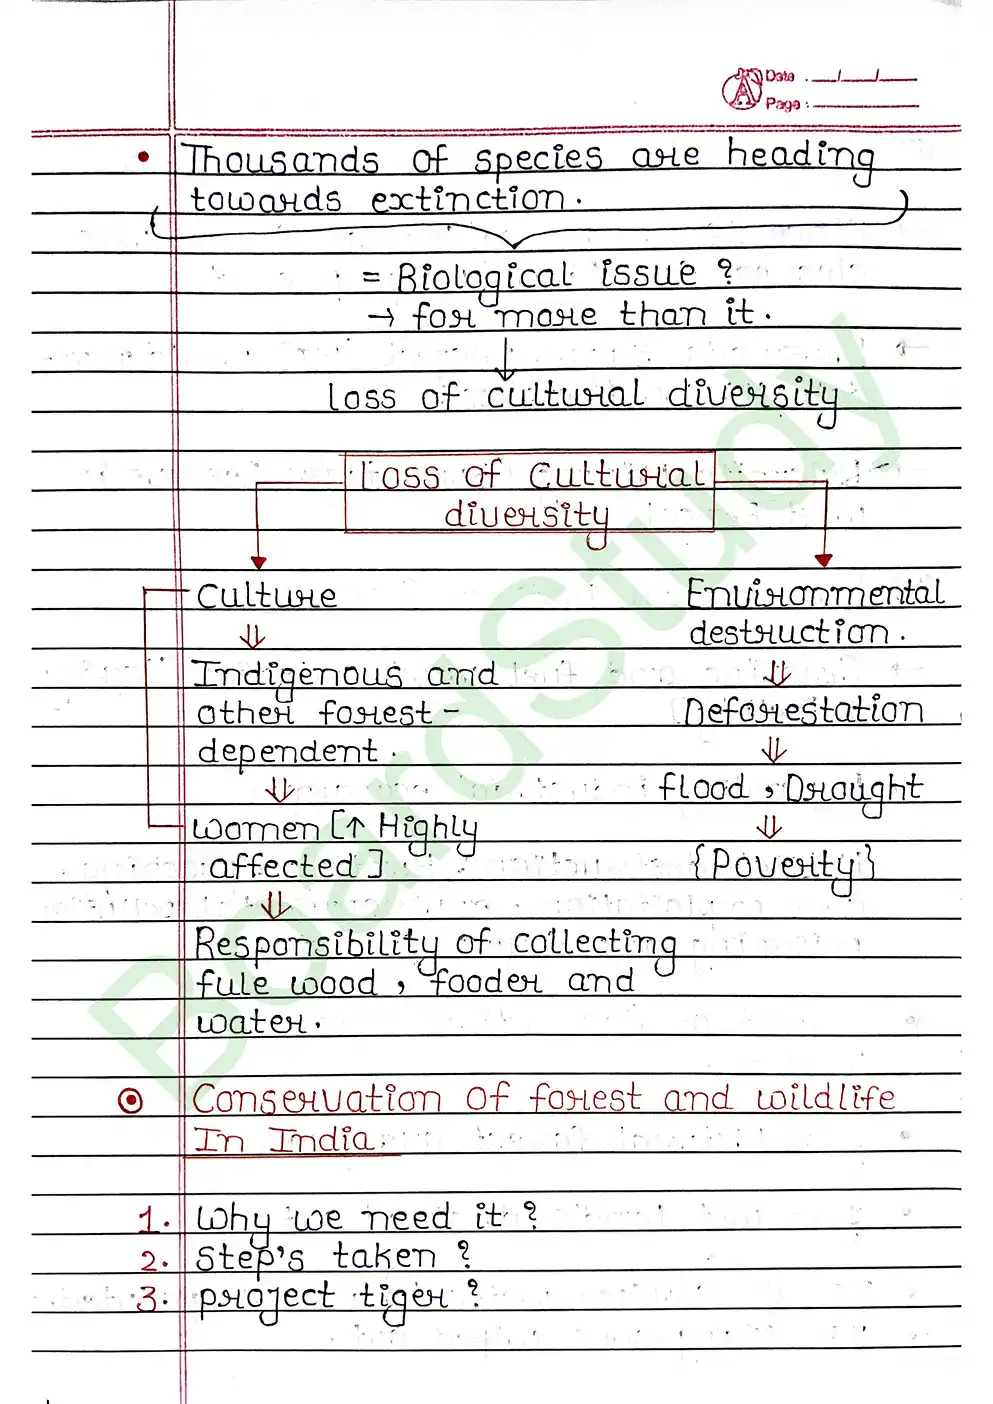 Date : __/__/__
Page :
• Thousands of species are heading
towards extinction.
= Biological issue ?
→ for more than it.
↓
loss of cultural diversity
Loss of Cultural
diversity
Culture
⇓
Indigenous and
other forest-
dependent.
⇓
women [↑ Highly
affected]
⇓
Responsibility of collecting
fule wood, fooder and
water.
Environmental
destruction.
⇓
Deforestation
⇓
flood, Drought
⇓
{Poverty}
Conservation of forest and wildlife
In India
1. Why we need it ?
2. Step's taken ?
3. project tiger ?
BoardStudy